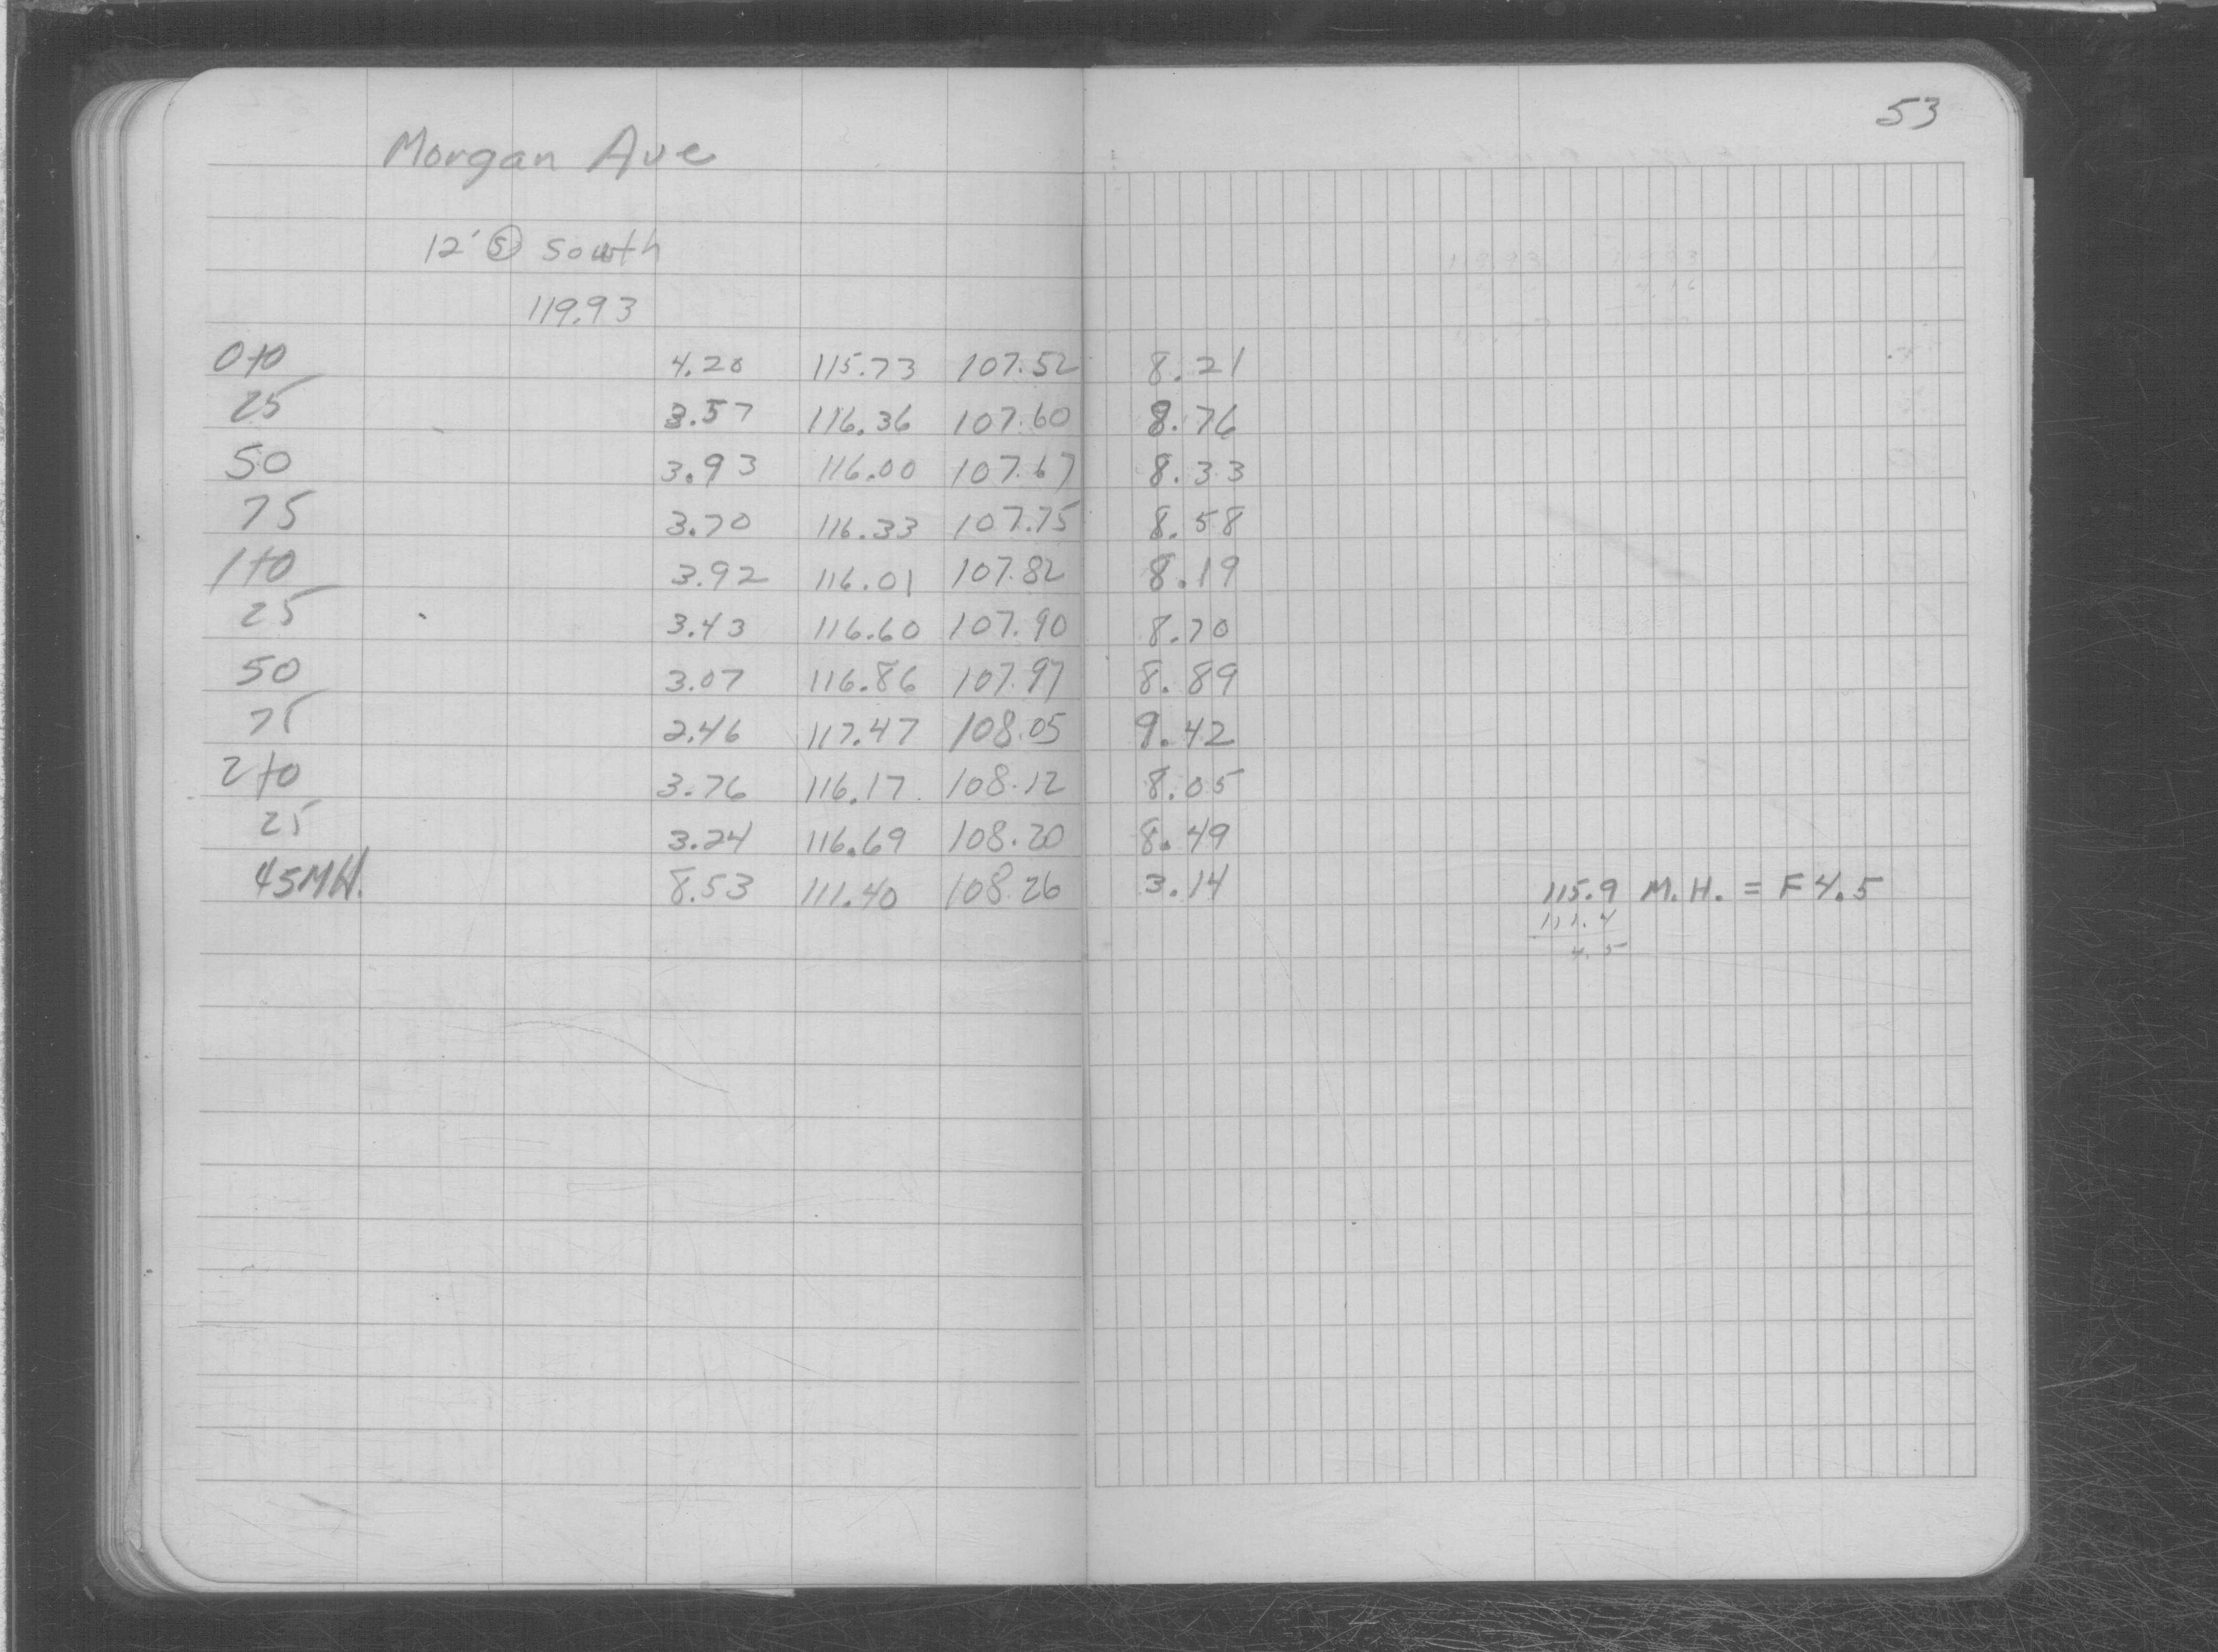 53
Morgan Ave
12' Ⓢ South
119.93
0+0 4.20 115.73 107.52 8.21
25 3.57 116.36 107.60 8.76
50 3.93 116.00 107.67 8.33
75 3.70 116.33 107.75 8.58
1+0 3.92 116.01 107.82 8.19
25 3.43 116.60 107.90 8.70
50 3.07 116.86 107.97 8.89
75 2.46 117.47 108.05 9.42
2+0 3.76 116.17 108.12 8.05
25 3.24 116.69 108.20 8.49
45 M.H. 8.53 111.40 108.26 3.14 115.9 M.H. = F 4.5
111.4
4.5